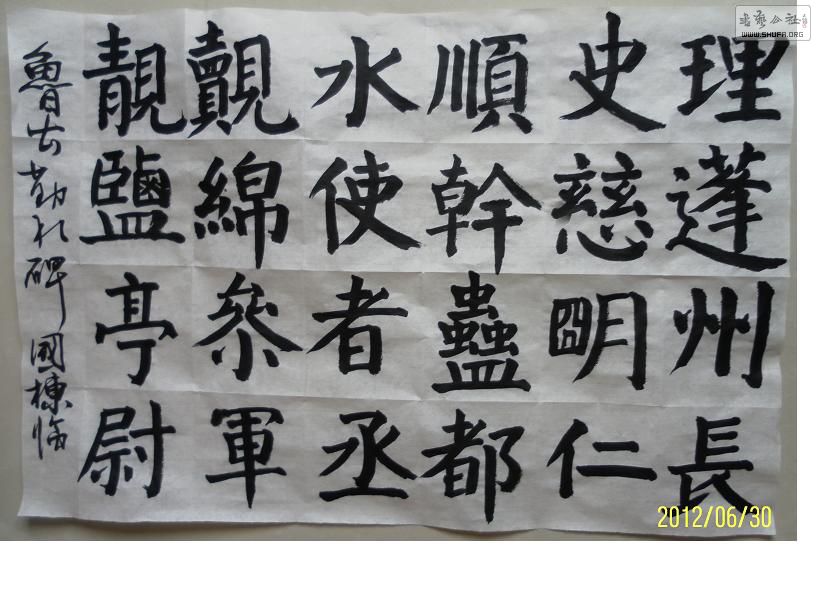 理蓬州長
史慈朙仁
順幹蠱都
水使者丞
覿綿叅軍
靚鹽亭尉
魯公勤礼碑 國棟临
書藝公社
WWW.SHUFA.ORG
2012/06/30